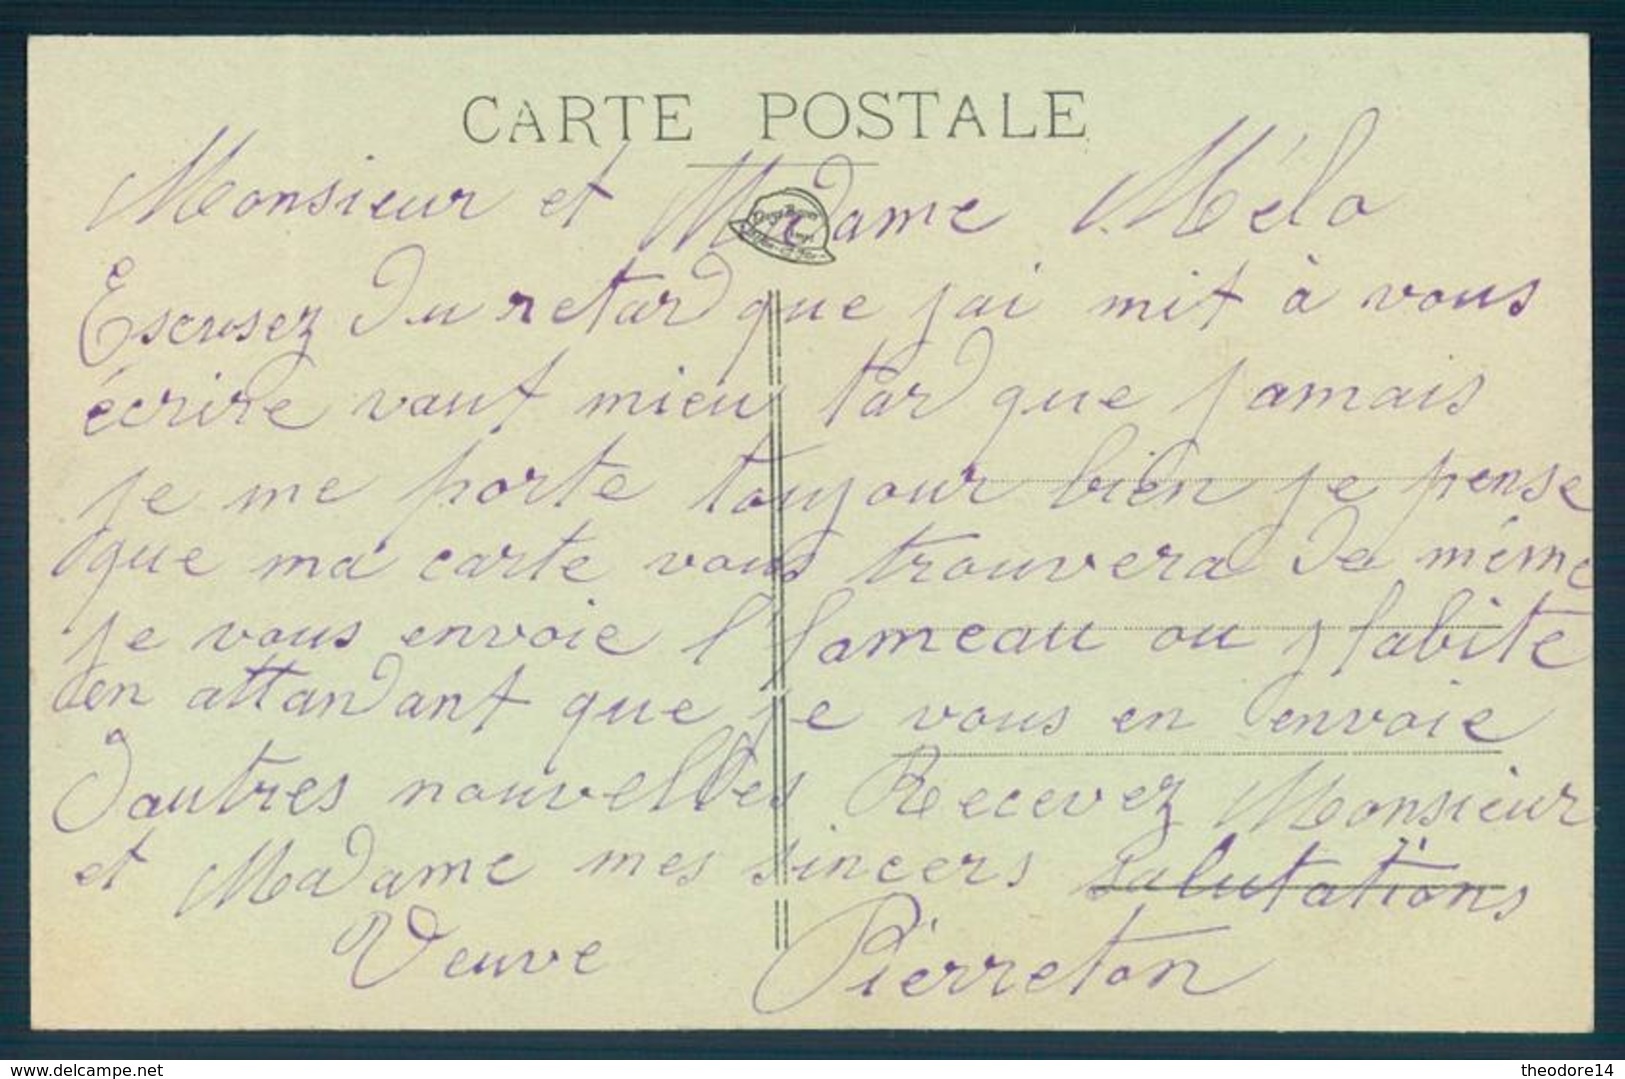 CARTE POSTALE
Monsieur et Madame Méla
Escusez du retard que jai mit à vous
écrire vaut mieu tard que jamais
je me porte toujour bien je pense
que ma carte vous trouvera de même
je vous envoie l'hameau ou j habite
en attandant que je vous en envoie
dautres nouvelles Recevez Monsieur
et Madame mes sincers salutations
Veuve Pierreton
www.delcampe.net
theodore14